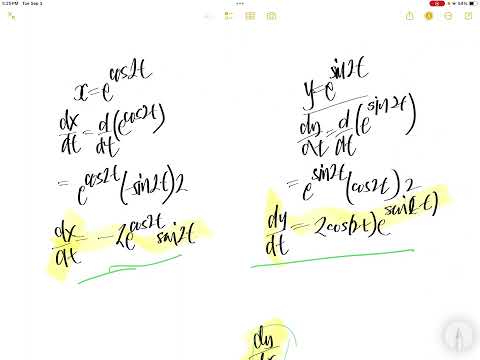 5:25 PM Tue Sep 3
58%
x = e^cos2t
dx/dt = d/dt (e^cos2t)
= e^cos2t (-sin2t) 2
dx/dt = -2e^cos2t sin2t
y = e^sin2t
dy/dt = d/dt (e^sin2t)
= e^sin2t (cos2t) 2
dy/dt = 2cos(2t) e^sin(2t)
dy/dx